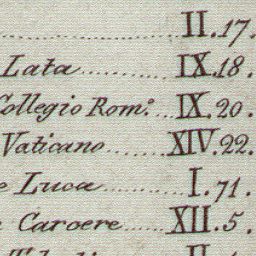 II. 17.
Lata IX. 18.
Collegio Rom.º IX. 20.
Vaticano XIV. 22.
Luca I. 71.
Carcere XII. 5.